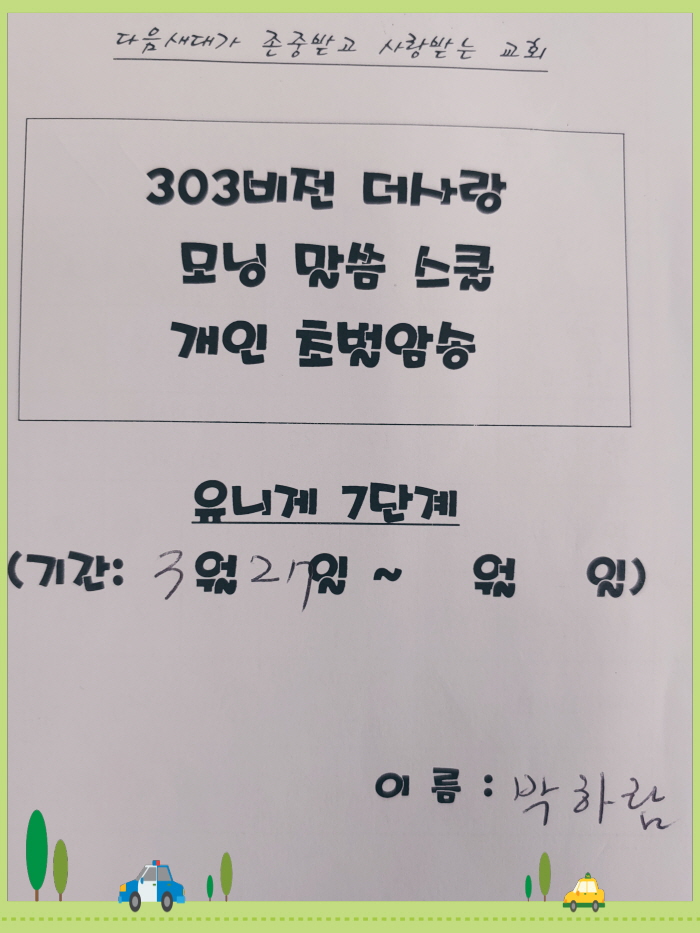 다음세대가 존중받고 사랑받는 교회
303비전 더사랑
모닝 말씀 스쿨
개인 초벌암송
유니게 7단계
(기간: 3월 27일 ~ 월 일)
이름 : 박하람